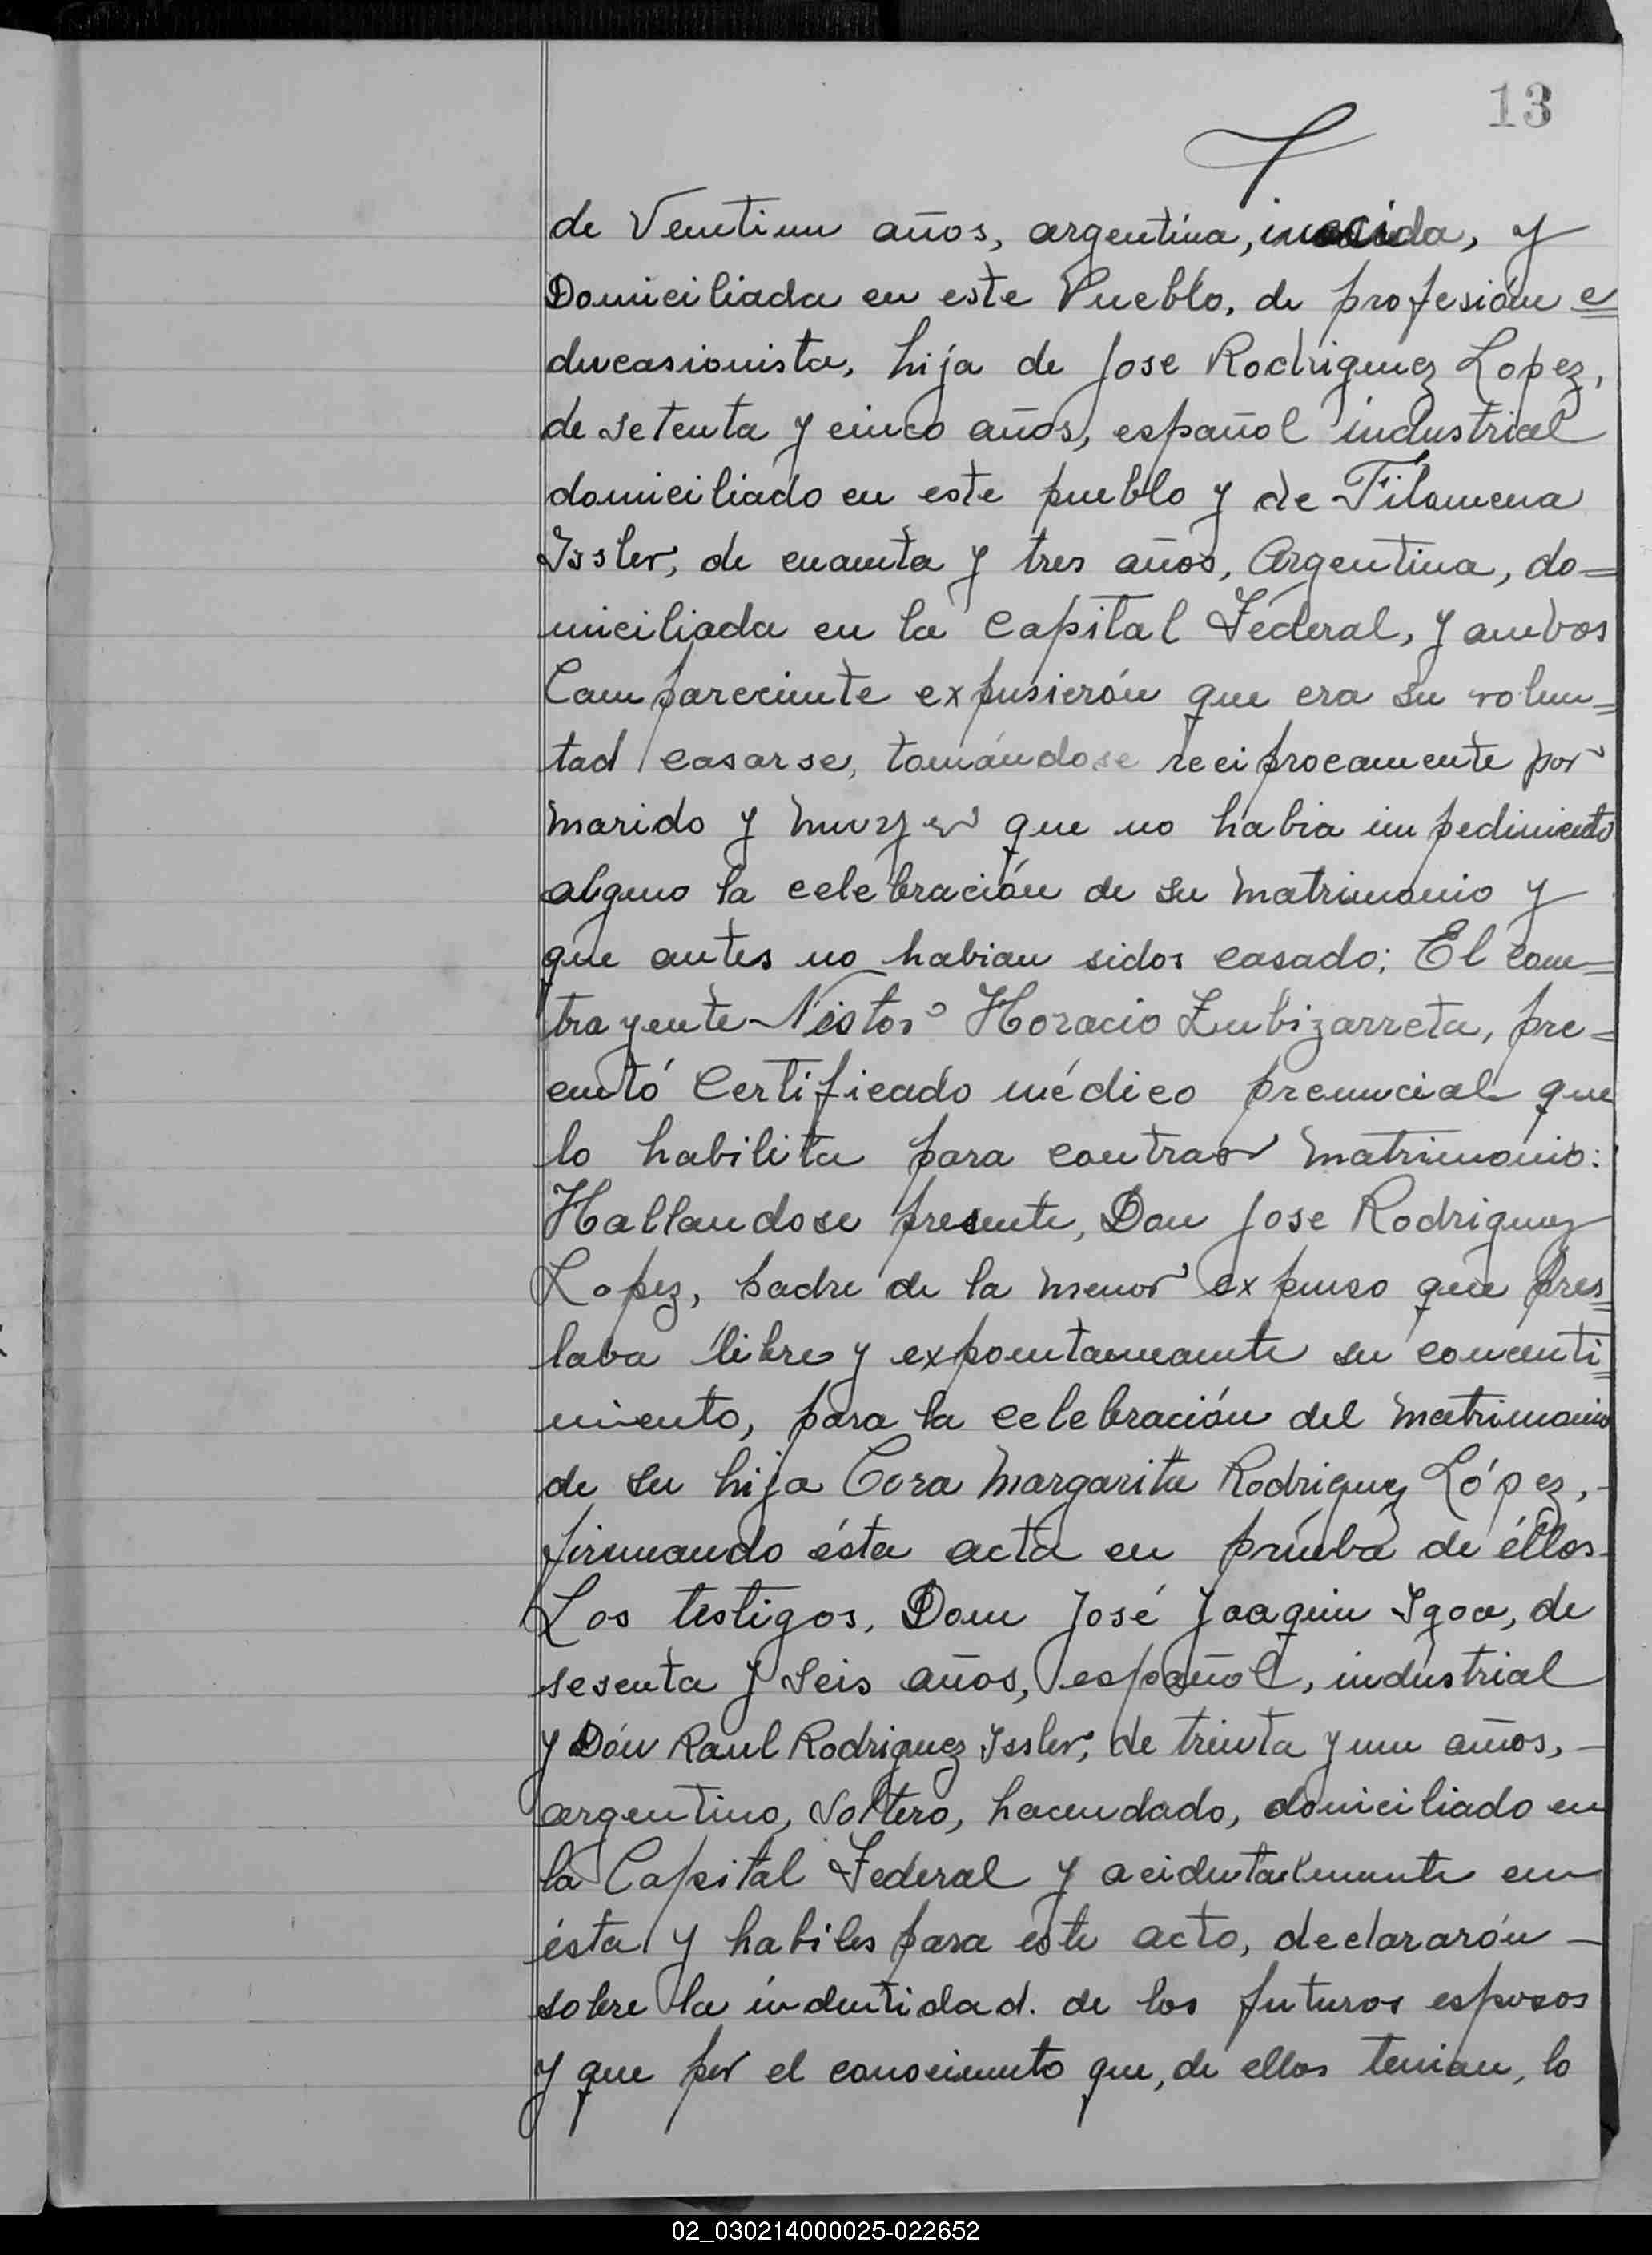 13
de Ventiun años, argentina, nacida, y
Domiciliada en este Pueblo, de profesión e=
ducasionista, hija de Jose Rodriguez Lopez,
de setenta y cinco años, español industrial
domiciliado en este pueblo y de Filomena
Issler, de cuanta y tres años, Argentina, do=
miciliada en la Capital Féderal, y ambos
Compareciente expusierón que era su volun=
tad casarse, tomándose reciprocamente por
marido y que no habia impedimiento
alguno la celebración de su matrimonio y
que antes no habian sidos casado: El con=
trayente Nestor Horacio Zubizarreta, pre=
entó Certificado médico prenucial que
lo habilita para contraer matrimonio:
Hallandose presente, Don Jose Rodriguez
Lopez, padre de la menor expuso que pres=
taba libre y expontaneamente su concenti=
miento, para la celebración del matrimonio
de su hija Cora Margarita Rodriguez López, -
firmando ésta acta en prueba de éllos-
Los testigos, Don José Joaquin Igoa, de
sesenta y seis años, español, industrial
y Dón Raul Rodriguez Issler, de treinta y un años, -
argentino, soltero, hacendado, domiciliado en
la Capital Federal y acidentalmente en
ésta y habiles para este acto, declararón -
sobre la indentidad. de los futuros esposos
y que por el conocimiento que, de ellos tenian, lo
02_030214000025-022652